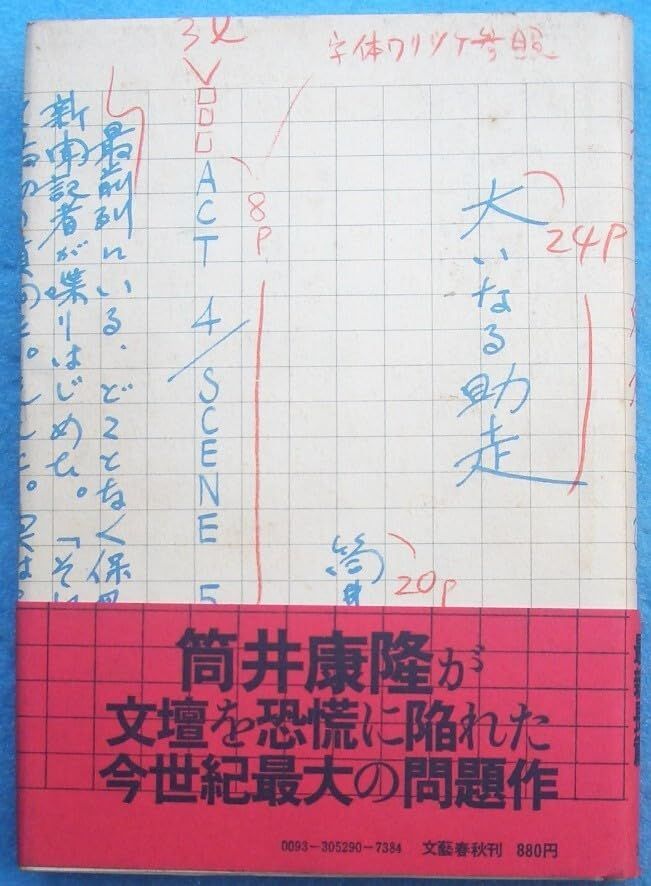 字体ワリツケ参照
大いなる助走
24P
筒井
20P
3行
ACT 4/SCENE 5
8P
最前列にいる、どことなく保
新聞記者が喋りはじめた。「そ
筒井康隆が
文壇を恐慌に陥れた
今世紀最大の問題作
0093-305290-7384 文藝春秋刊 880円